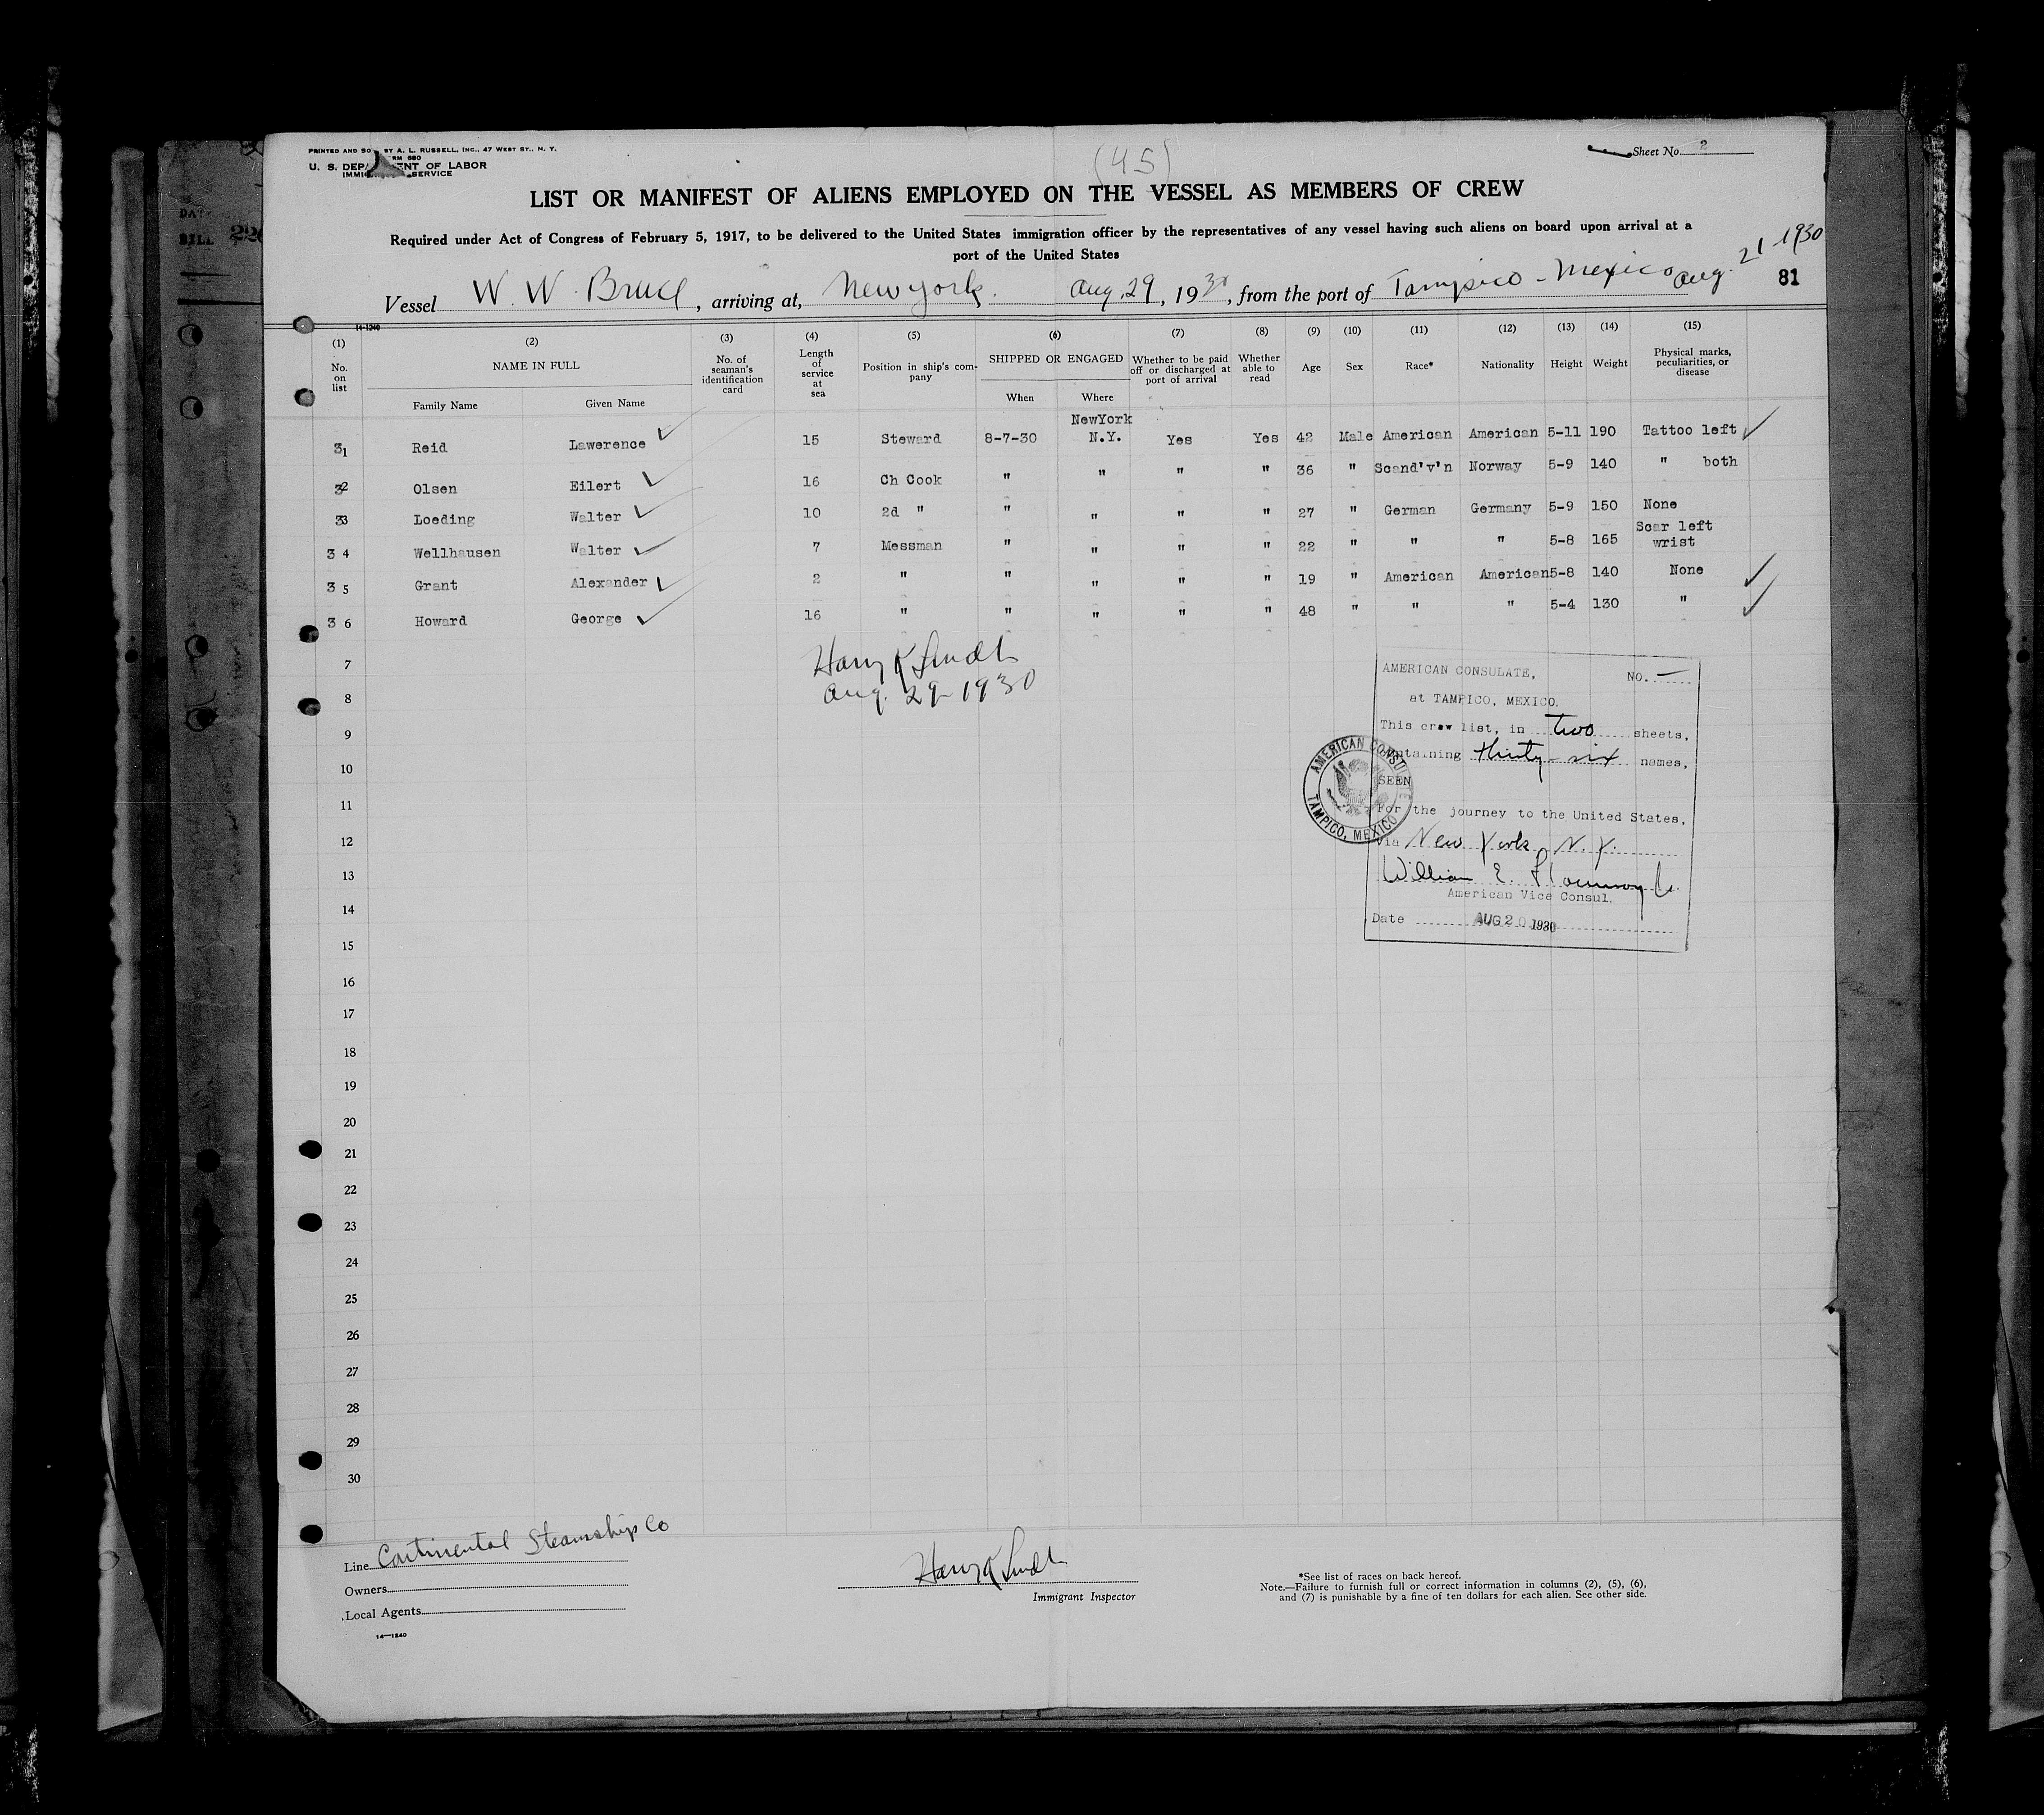 PRINTED AND SO BY A. L. RUSSELL, INC., 47 WEST ST., N. Y.
RM 680
U. S. DEPA ENT OF LABOR
IMMI SERVICE
(45)
Sheet No. 2
LIST OR MANIFEST OF ALIENS EMPLOYED ON THE VESSEL AS MEMBERS OF CREW
Required under Act of Congress of February 5, 1917, to be delivered to the United States immigration officer by the representatives of any vessel having such aliens on board upon arrival at a
port of the United States
Vessel W. W. Bruce, arriving at, New York. Aug. 29, 1930, from the port of Tampico - Mexico Aug. 21 1930
81
14-1240
(1) (2) (3) (4) (5) (6) (7) (8) (9) (10) (11) (12) (13) (14) (15)
No. on list NAME IN FULL No. of seaman's identification card Length of service at sea Position in ship's company SHIPPED OR ENGAGED Whether to be paid off or discharged at port of arrival Whether able to read Age Sex Race* Nationality Height Weight Physical marks, peculiarities, or disease
Family Name Given Name When Where
31 Reid Lawerence 15 Steward 8-7-30 NewYork N.Y. Yes Yes 42 Male American American 5-11 190 Tattoo left
32 Olsen Eilert 16 Ch Cook " " " " 36 " Scand'v'n Norway 5-9 140 " both
33 Loeding Walter 10 2d " " " " " 27 " German Germany 5-9 150 None
34 Wellhausen Walter 7 Messman " " " " 22 " " " 5-8 165 Scar left wrist
35 Grant Alexander 2 " " " " " 19 " American American 5-8 140 None
36 Howard George 16 " " " " " 48 " " " 5-4 130 "
7
8
9
10
11
12
13
14
15
16
17
18
19
20
21
22
23
24
25
26
27
28
29
30
Harry K
Aug. 29-1930
AMERICAN CONSULATE, NO. —
at TAMPICO, MEXICO.
This crew list, in two sheets,
containing thirty-six names,
SEEN
For the journey to the United States,
Via New York, N.Y.
William E.
American Vice Consul.
Date AUG 20 1930
AMERICAN CONSULATE
TAMPICO, MEXICO
Line Continental Steamship Co
Owners
Local Agents
14-1240
Harry K
Immigrant Inspector
*See list of races on back hereof.
Note.—Failure to furnish full or correct information in columns (2), (5), (6),
and (7) is punishable by a fine of ten dollars for each alien. See other side.
DATE
BILL 226